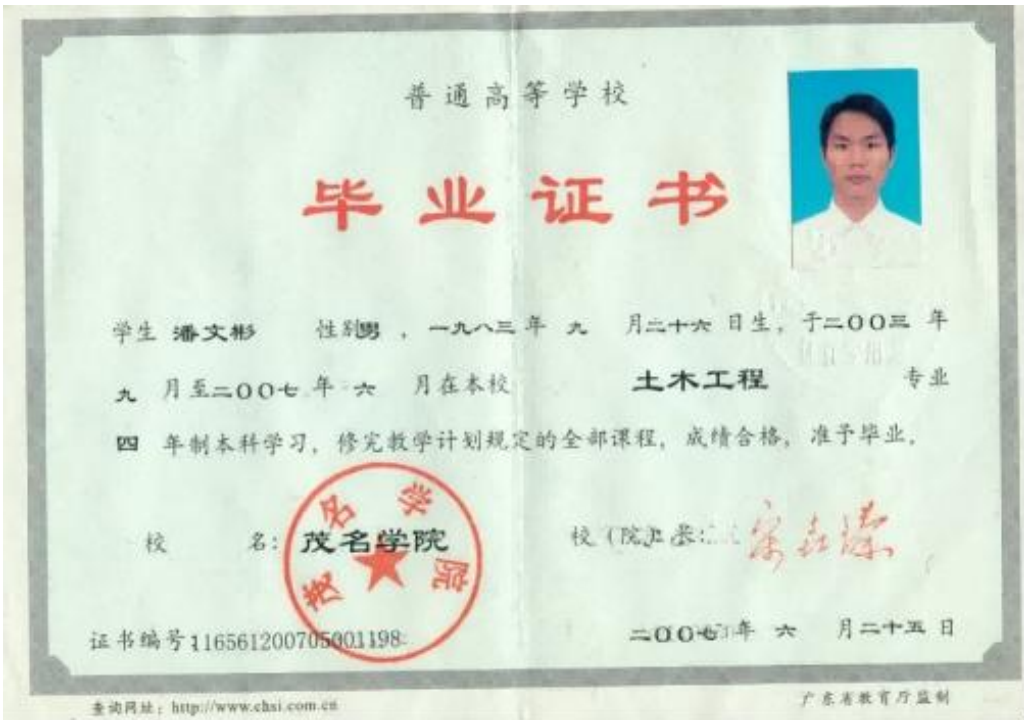 普通高等学校
毕业证书
学生 潘文彬 性别男，一九八三年 九 月二十六日生，于二〇〇三年
九 月至二〇〇七年 六 月在本校 土木工程 专业
四 年制本科学习，修完教学计划规定的全部课程，成绩合格，准予毕业。
茂名学院
校 名：茂名学院 校（院）长：
证书编号：116561200705001198 二〇〇七年 六 月二十五日
查询网址：http://www.chsi.com.cn 广东省教育厅监制